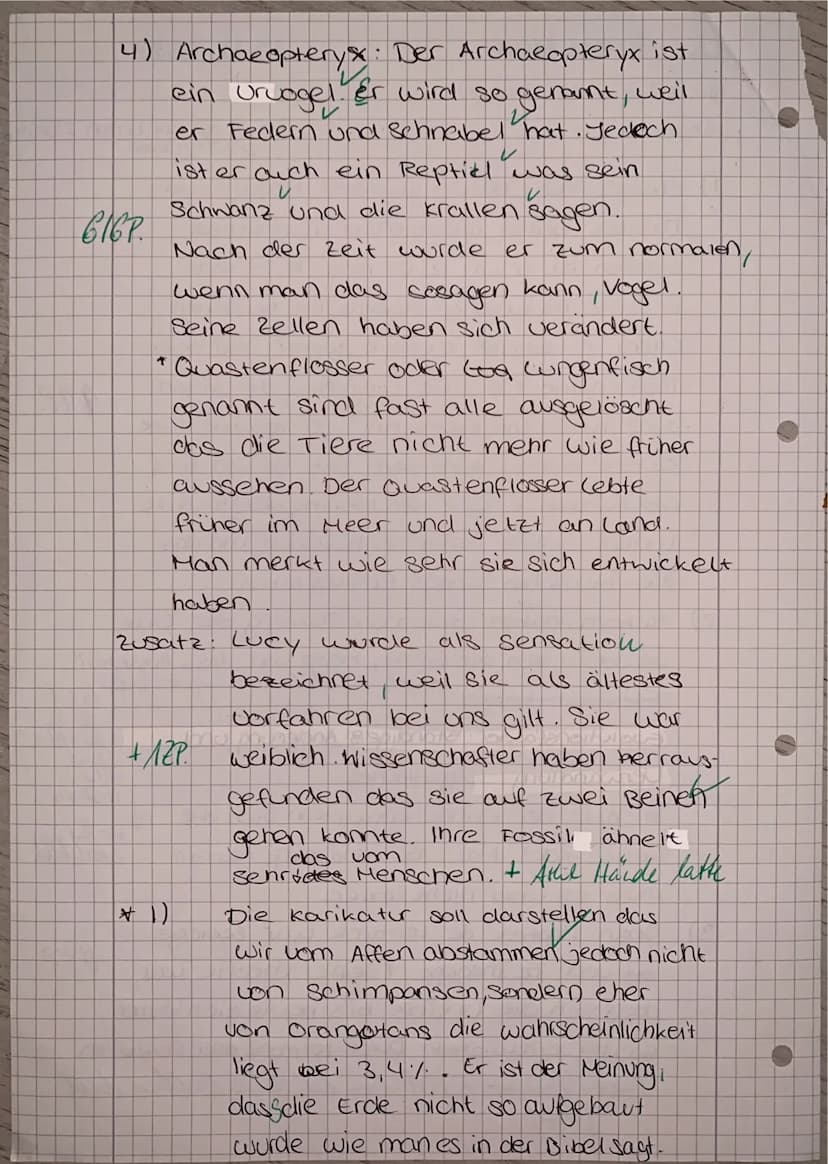 4) Archaeopteryx: Der Archaeopteryx ist
ein Urvogel. Er wird so genannt, weil
er Federn und Schnabel hat. Jedoch
ist er auch ein Reptiel was sein
Schwanz und die Krallen sagen.
6/6P.
Nach der Zeit wurde er zum normalen,
wenn man das sosagen kann, Vogel.
Seine Zellen haben sich verändert.
* Quastenflosser oder Lungenfisch
genannt sind fast alle ausgelöscht
das die Tiere nicht mehr wie früher
aussehen. Der Quastenflosser lebte
früher im Meer und jetzt an Land.
Man merkt wie sehr sie sich entwickelt
haben.
Zusatz: Lucy wurde als sensation
bezeichnet, weil sie als ältestes
Vorfahren bei uns gilt. Sie war
+1ZP. weiblich. Wissenschafter haben herraus-
gefunden das sie auf zwei Beinen
gehen konnte. Ihre Fossil ähnelt
das vom
sehr des Menschen. + Hände
* 1) Die Karikatur soll darstellen das
wir vom Affen abstammen jedoch nicht
von Schimpansen, sondern eher
von Orangotans die wahrscheinlichkeit
liegt bei 3,4%. Er ist der Meinung,
dass die Erde nicht so aufgebaut
wurde wie man es in der Bibel sagt.